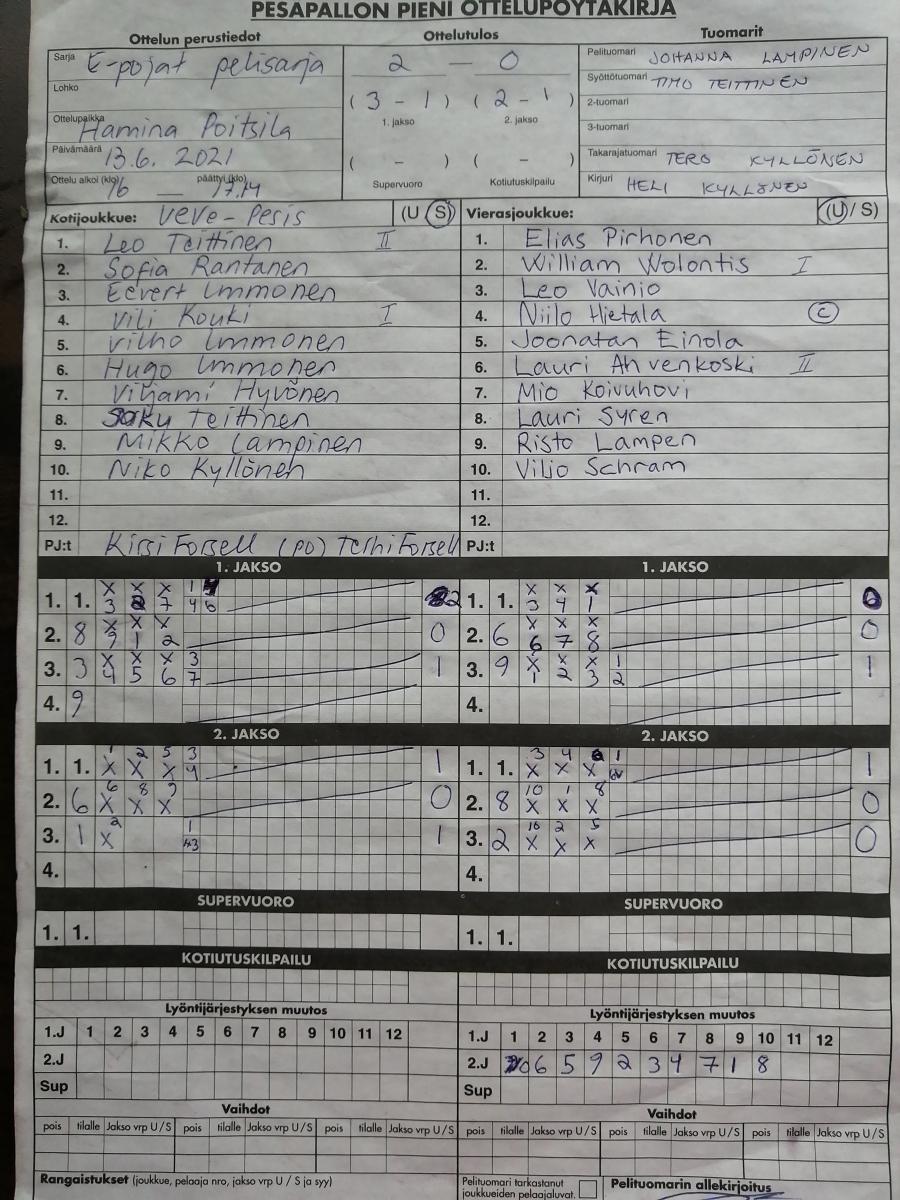 PESÄPALLON PIENI OTTELUPÖYTÄKIRJA
Ottelun perustiedot
Sarja E-pojat pelisarja
Lohko
Ottelupaikka Hamina Poitsila
Päivämäärä 13.6. 2021
Ottelu alkoi (klo) 16 — päättyi (klo) 17.14
Ottelutulos
2 — 0
( 3 - 1 ) ( 2 - 1 )
1. jakso 2. jakso
( - ) ( - )
Supervuoro Kotiutuskilpailu
Tuomarit
Pelituomari JOHANNA LAMPINEN
Syöttötuomari TIMO TEITTINEN
2-tuomari
3-tuomari
Takarajatuomari TERO KYLLÖNEN
Kirjuri HELI KYLLÖNEN
Kotijoukkue: VEVE-Pesis (U S)
1. Leo Teittinen II
2. Sofia Rantanen
3. Eevert Immonen
4. Vili Kouki I
5. Vilho Immonen
6. Hugo Immonen
7. Viljami Hyvönen
8. Saku Teittinen
9. Mikko Lampinen
10. Niko Kyllönen
11.
12.
PJ:t Kirsi Forsell (PJ) Terhi Forsell
Vierasjoukkue: (U/S)
1. Elias Pirhonen
2. William Wolontis I
3. Leo Vainio
4. Niilo Hietala C
5. Joonatan Einola
6. Lauri Ahvenkoski II
7. Mio Koivuhovi
8. Lauri Syren
9. Risto Lampen
10. Viljo Schram
11.
12.
PJ:t
1. JAKSO
X X X 1
1. 1. 3 2 7 4 6 2
X X X
2. 8 9 1 2 0
X X X 3
3. 3 4 5 6 7 1
4. 9
1. JAKSO
X X X
1. 1. 3 4 1 0
X X X
2. 6 6 7 8 0
X X X 1
3. 9 1 2 3 2 1
4.
2. JAKSO
1 2 5 3
1. 1. X X X 4 1
6 8 9
2. 6 X X X 0
2 1
3. 1 X 3 1
4.
2. JAKSO
3 4 1
1. 1. X X X 1
10 1 8
2. 8 X X X 0
10 2 5
3. 2 X X X 0
4.
SUPERVUORO
1. 1.
SUPERVUORO
1. 1.
KOTIUTUSKILPAILU
KOTIUTUSKILPAILU
Lyöntijärjestyksen muutos
1.J 1 2 3 4 5 6 7 8 9 10 11 12
2.J
Sup
Lyöntijärjestyksen muutos
1.J 1 2 3 4 5 6 7 8 9 10 11 12
2.J 10 6 5 9 2 3 4 7 1 8
Sup
Vaihdot
pois tilalle Jakso vrp U/S pois tilalle Jakso vrp U/S pois tilalle Jakso vrp U/S
Vaihdot
pois tilalle Jakso vrp U/S pois tilalle Jakso vrp U/S pois tilalle Jakso vrp U/S
Rangaistukset (joukkue, pelaaja nro, jakso vrp U / S ja syy)
Pelituomari tarkastanut
joukkueiden pelaajaluvat.
Pelituomarin allekirjoitus